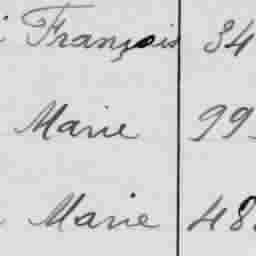 François 34
Marie 99
Marie 48